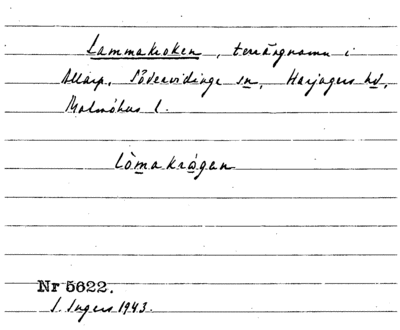 Lammakroken, terrängnamn i
Allarp, Södervidinge sn, Harjagers hd,
Malmöhus l.
lòmakrågan
Nr 5622.
S. Ingers 1943.